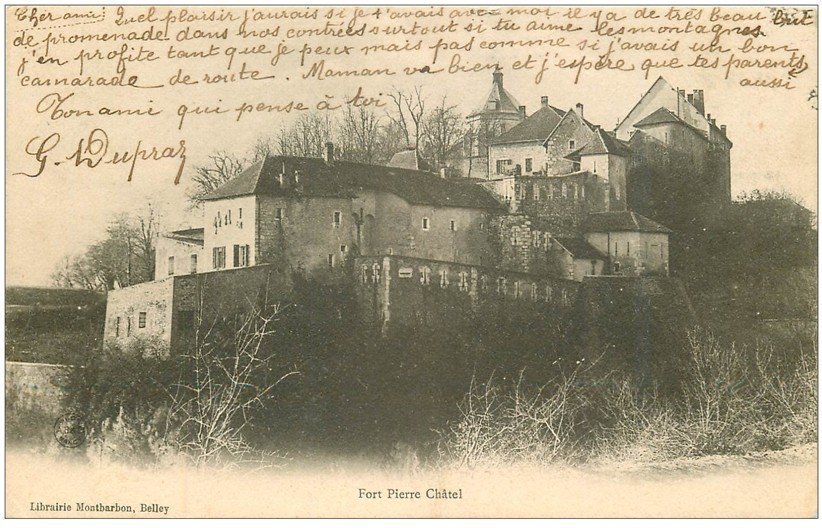 Cher ami Quel plaisir j'aurais si je t'avais avec moi il y a de très beau but
de promenade dans nos contrées surtout si tu aime les montagnes
j'en profite tant que je peux mais pas comme si j'avais un bon
camarade de route. Maman va bien et j'espère que tes parents
aussi
Ton ami qui pense à toi
G. Dupraz
Fort Pierre Châtel
Librairie Montbarbon, Belley